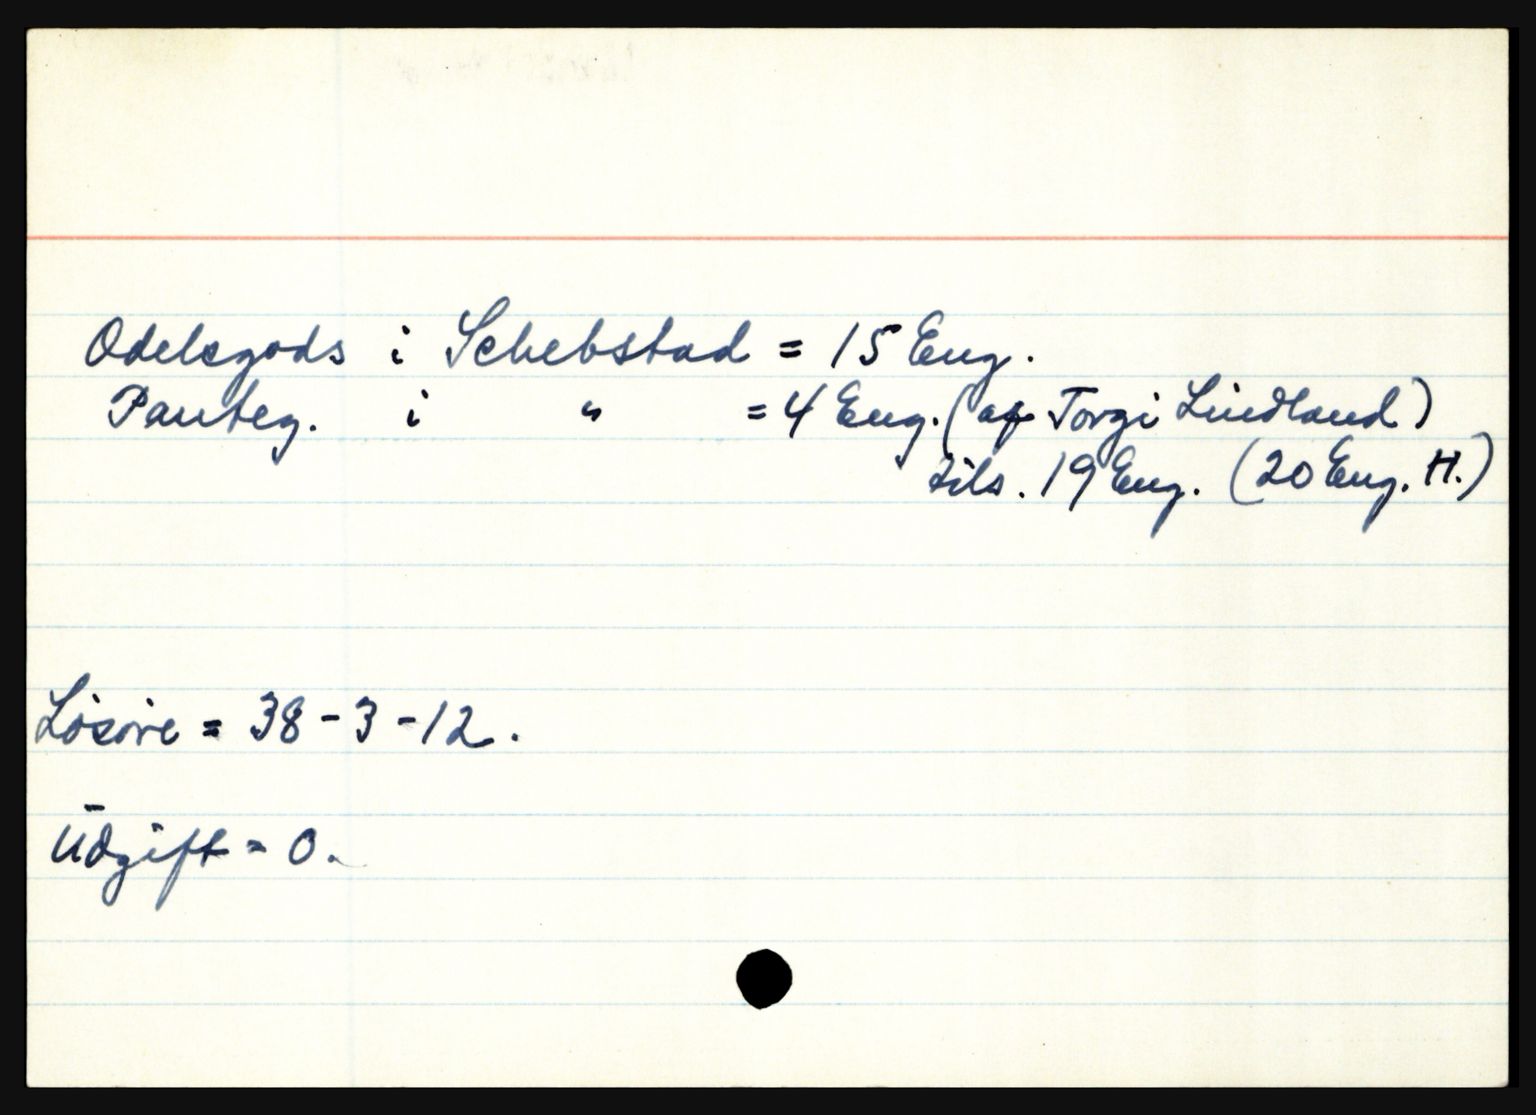 Odelsgods i Schebstad = 15 Eng.
Panteg. i " = 4 Eng. (af Torgi Lindland)
tils. 19 Eng. (20 Eng. H.)
Løsøre = 38 - 3 - 12.
Udgift = 0.